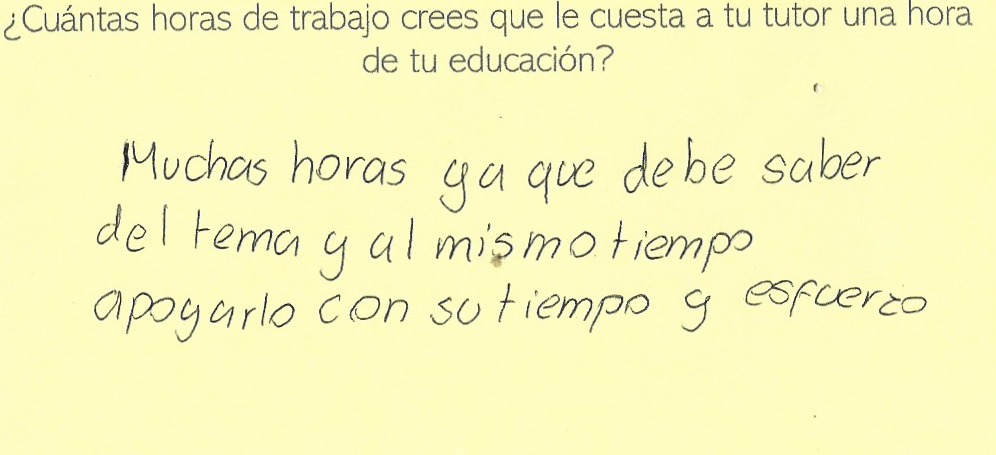 ¿Cuántas horas de trabajo crees que le cuesta a tu tutor una hora
de tu educación?
Muchas horas ya que debe saber
del tema y al mismo tiempo
apoyarlo con su tiempo y esfuerzo